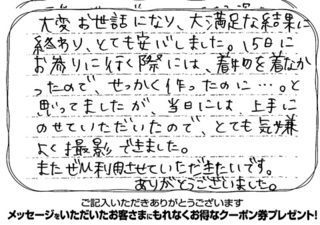 大変お世話になり、大満足な結果に
終わり、とても安心しました。15日に
お祓りに行く際には、着物を着なか
ったので、せっかく作ったのに…。と
思ってましたが、当日には、上手に
のせていただいたので、とても気嫌
よく撮影できました。
またぜひ利用させていただきたいです。
ありがとうございました。
ご記入いただきありがとうございます
メッセージをいただいたお客さまにもれなくお得なクーポン券プレゼント!